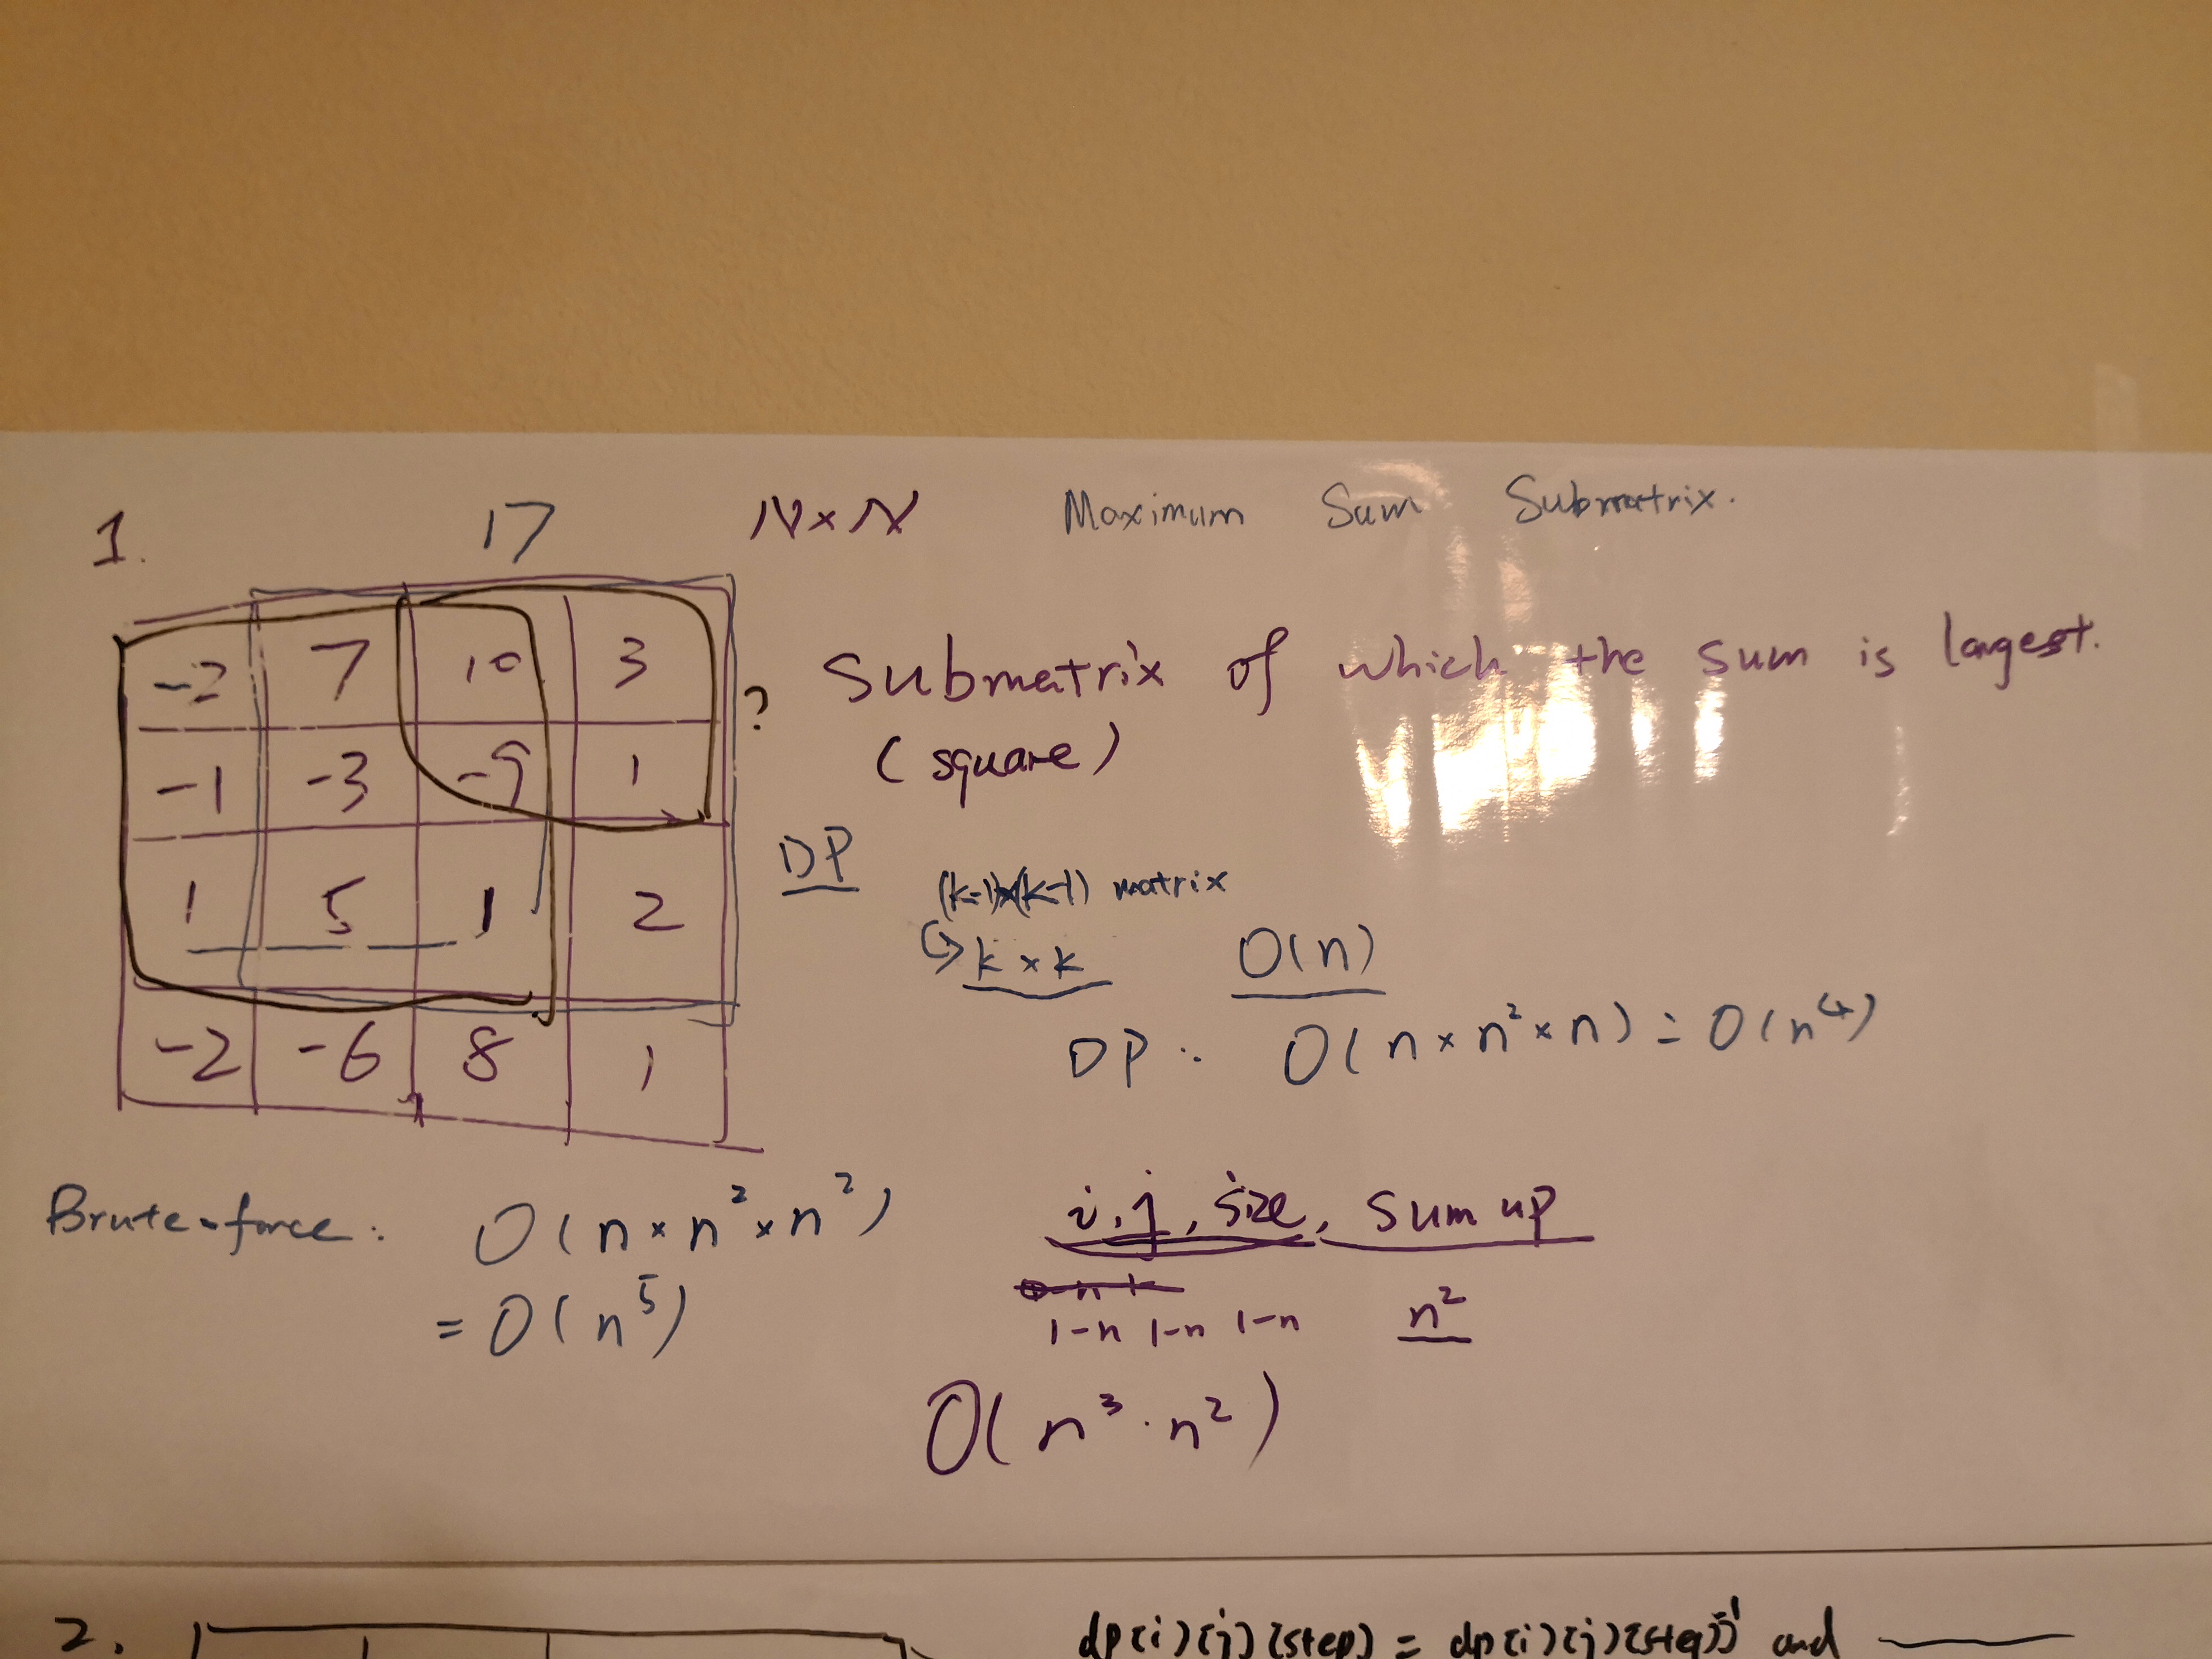 1.
17
N×N
Maximum Sum Submatrix.
-2 7 10 3
-1 -3 -9 1
1 5 1 2
-2 -6 8 1
? Submatrix of which the sum is largest.
(square)
DP
(k-1)×(k-1) matrix
↳ k × k
O(n)
DP: O(n × n² × n) = O(n⁴)
Brute-force: O(n × n² × n²)
= O(n⁵)
i, j, size, sum up
1-n 1-n 1-n n²
O(n³·n²)
2.
dp[i][j][step] = dp[i][j][step]-1 and